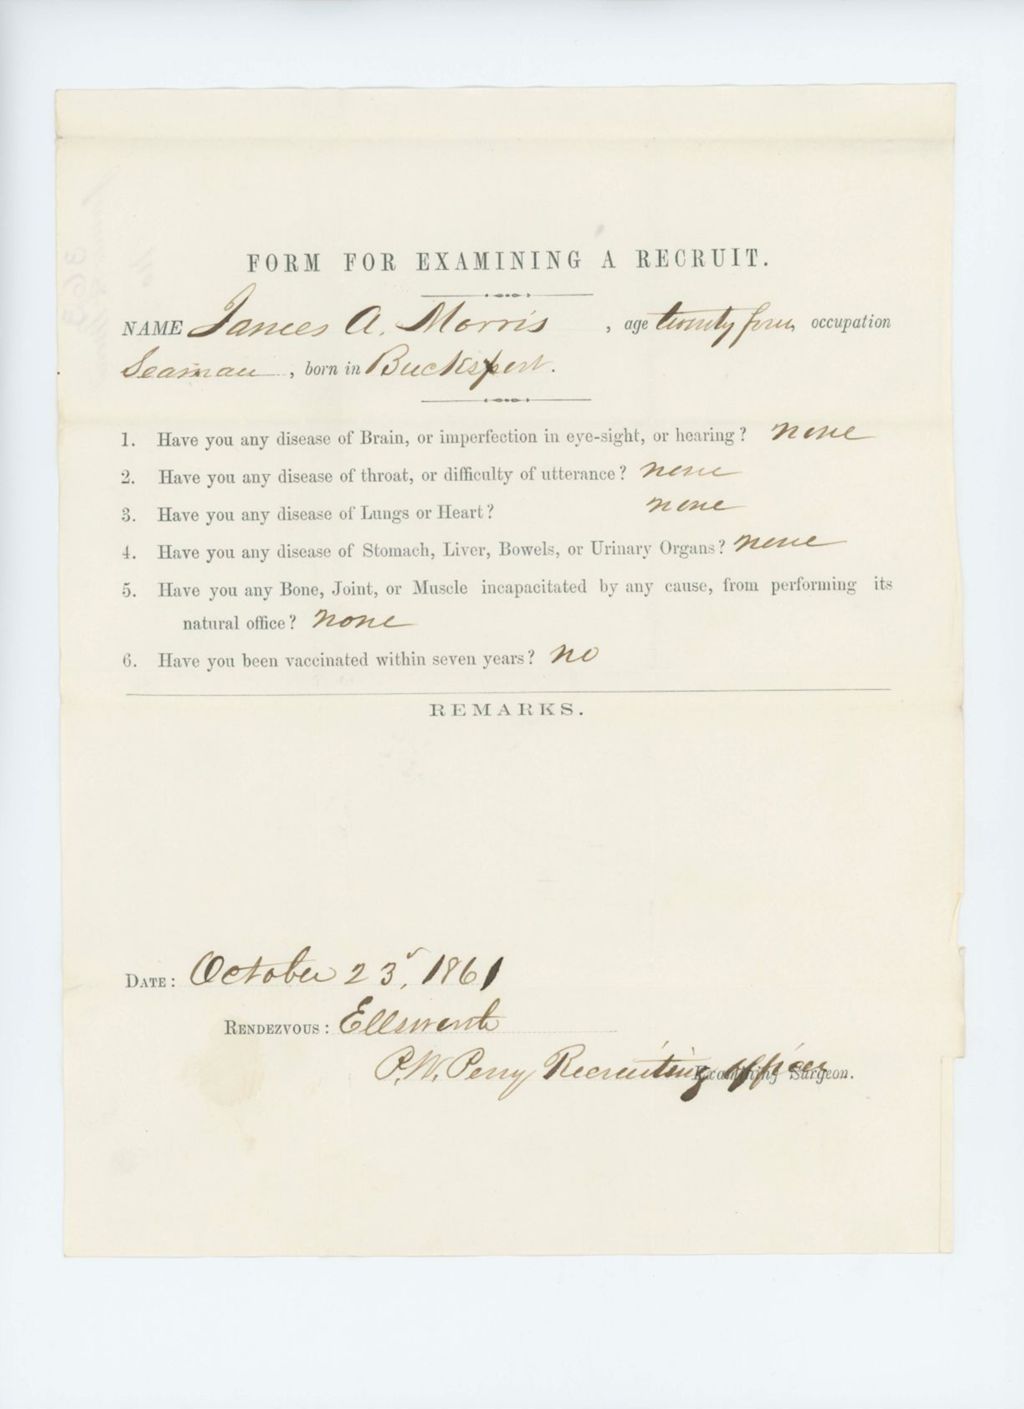 FORM FOR EXAMINING A RECRUIT.
NAME James A. Morris, age twenty four, occupation
Seaman, born in Bucksport.
1. Have you any disease of Brain, or imperfection in eye-sight, or hearing? none
2. Have you any disease of throat, or difficulty of utterance? none
3. Have you any disease of Lungs or Heart? none
4. Have you any disease of Stomach, Liver, Bowels, or Urinary Organs? none
5. Have you any Bone, Joint, or Muscle incapacitated by any cause, from performing its
natural office? none
6. Have you been vaccinated within seven years? no
REMARKS.
DATE: October 23, 1861
RENDEZVOUS: Ellsworth
P. W. Perry Recruiting officer Examining Surgeon.